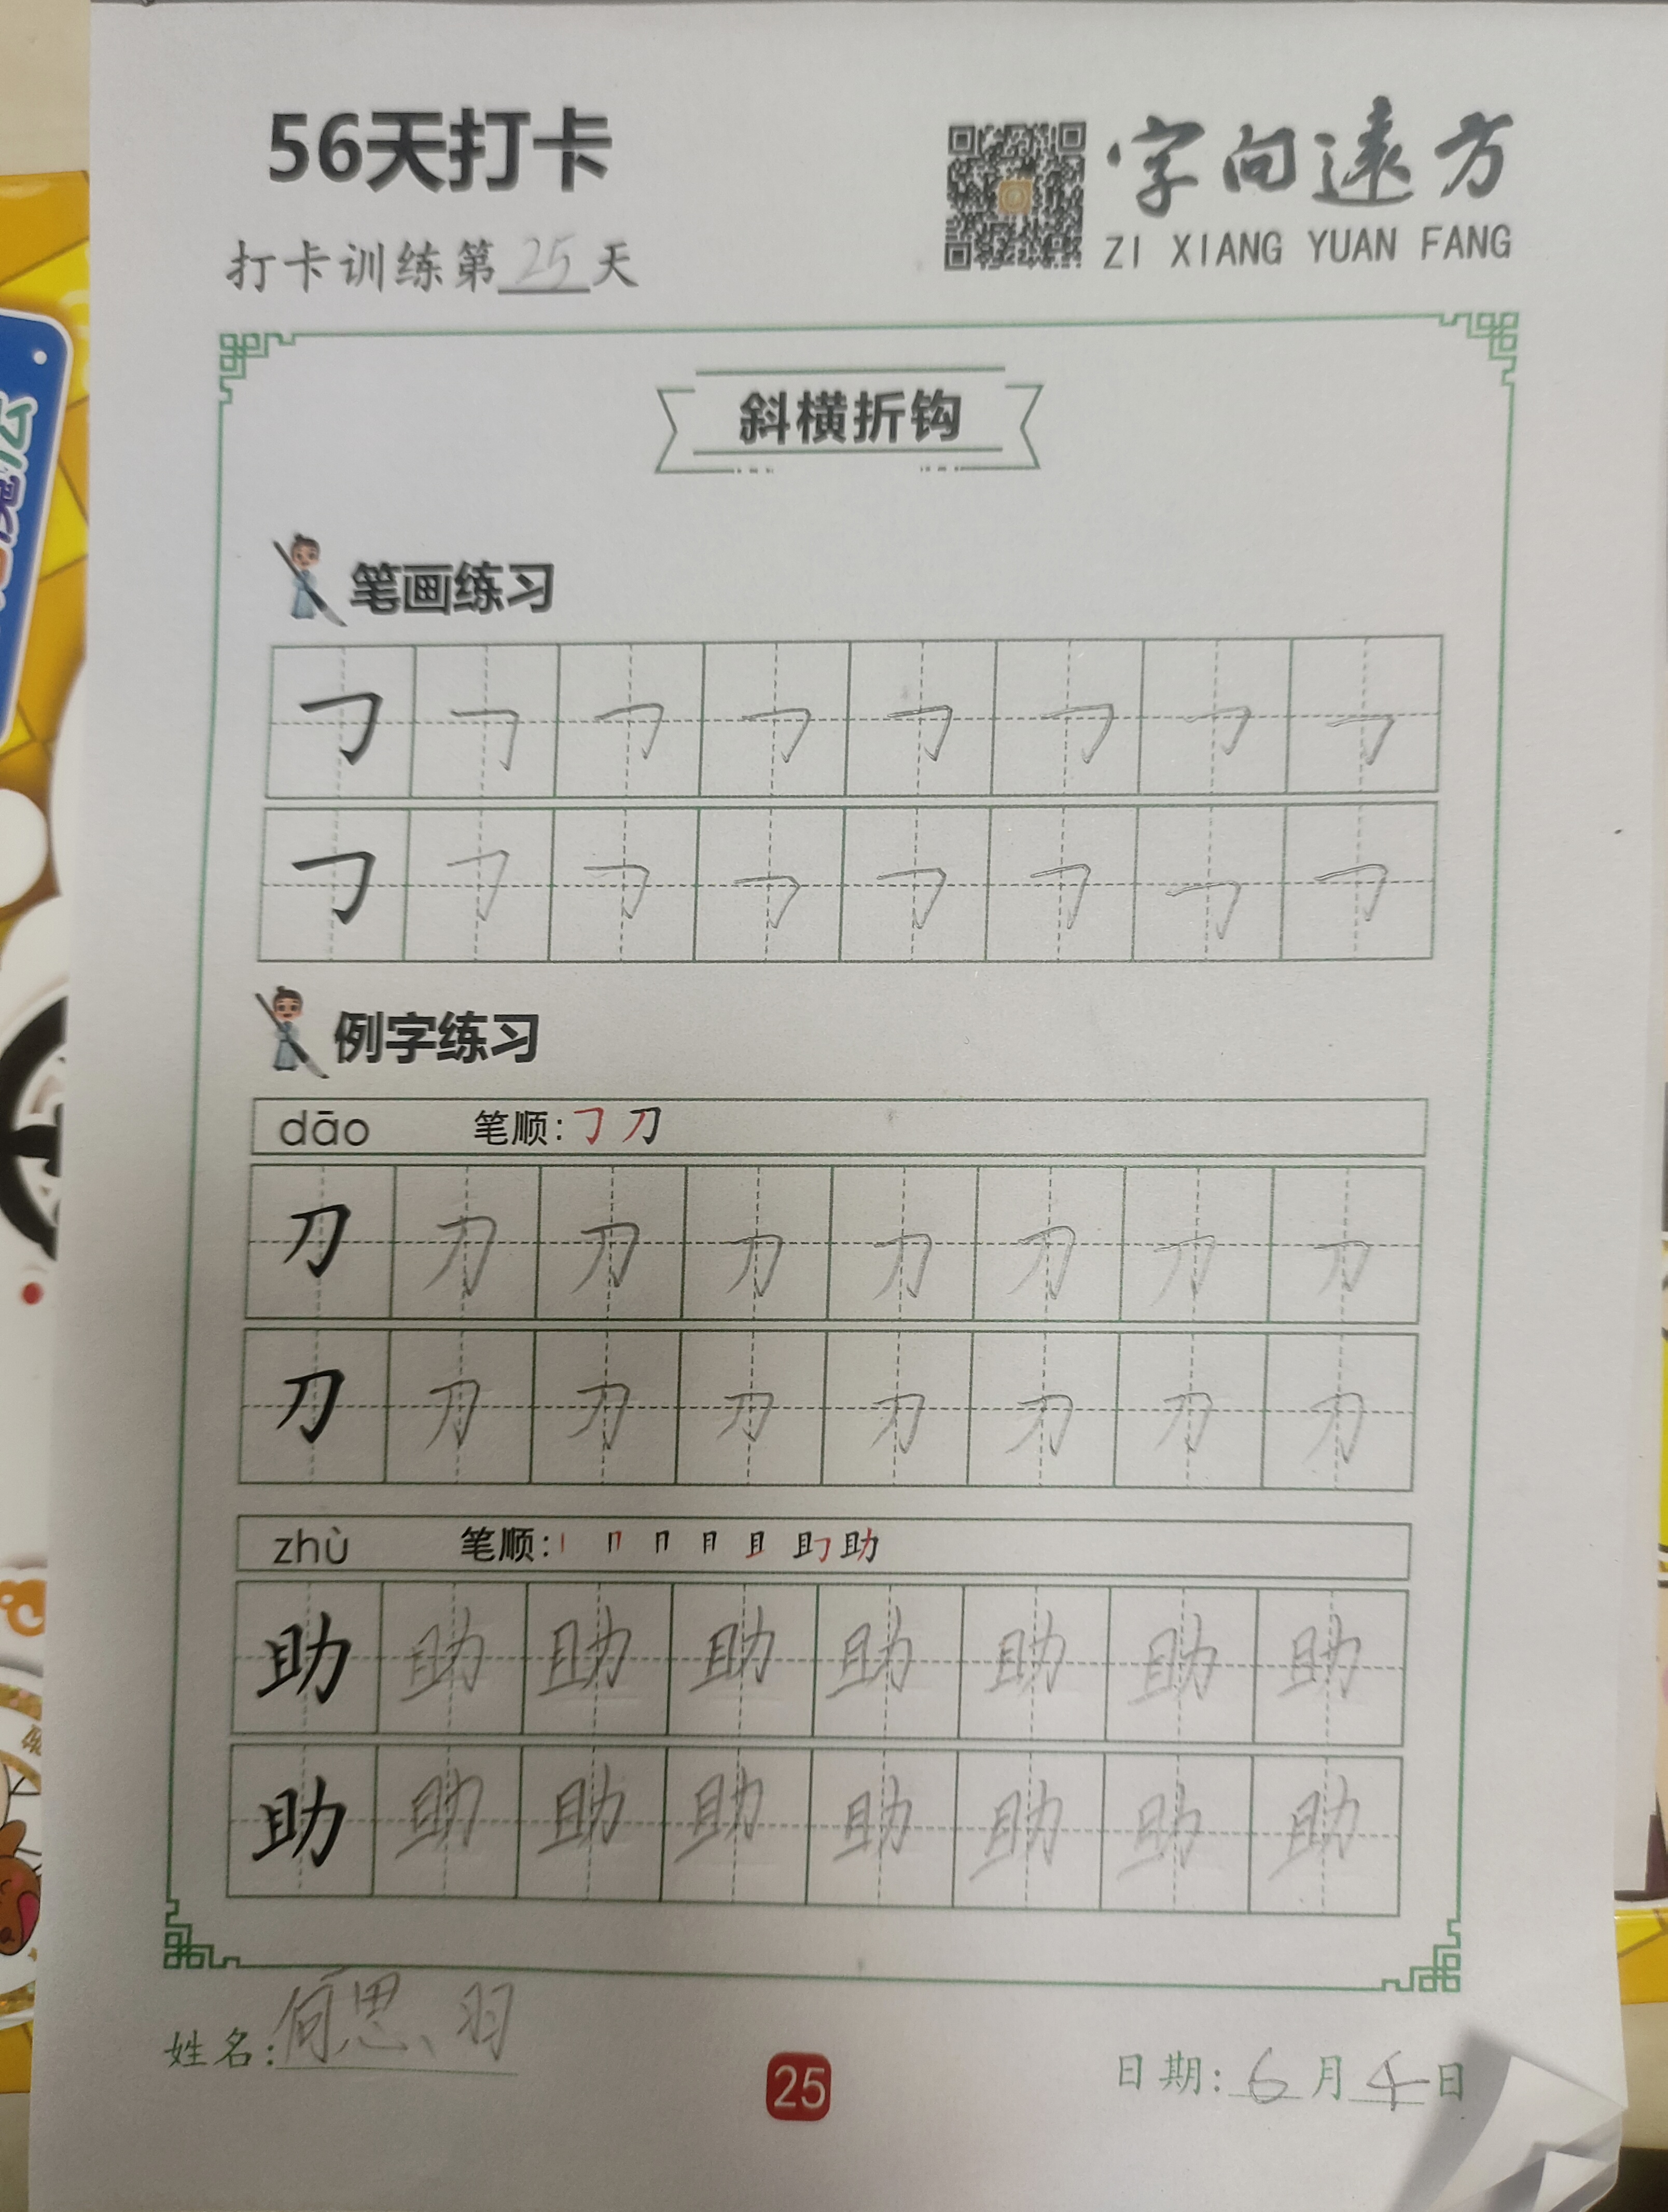 56天打卡
字向遠方
打卡训练第25天
ZI XIANG YUAN FANG
斜横折钩
笔画练习
㇆ ㇆ ㇆ ㇆ ㇆ ㇆ ㇆ ㇆
㇆ ㇆ ㇆ ㇆ ㇆ ㇆ ㇆ ㇆
例字练习
dāo 笔顺: ㇆ 刀
刀 刀 刀 刀 刀 刀 刀 刀
刀 刀 刀 刀 刀 刀 刀 刀
zhù 笔顺: 丨 冂 月 且 助
助 助 助 助 助 助 助 助
助 助 助 助 助 助 助 助
姓名: 何思羽
25
日期: 6月4日